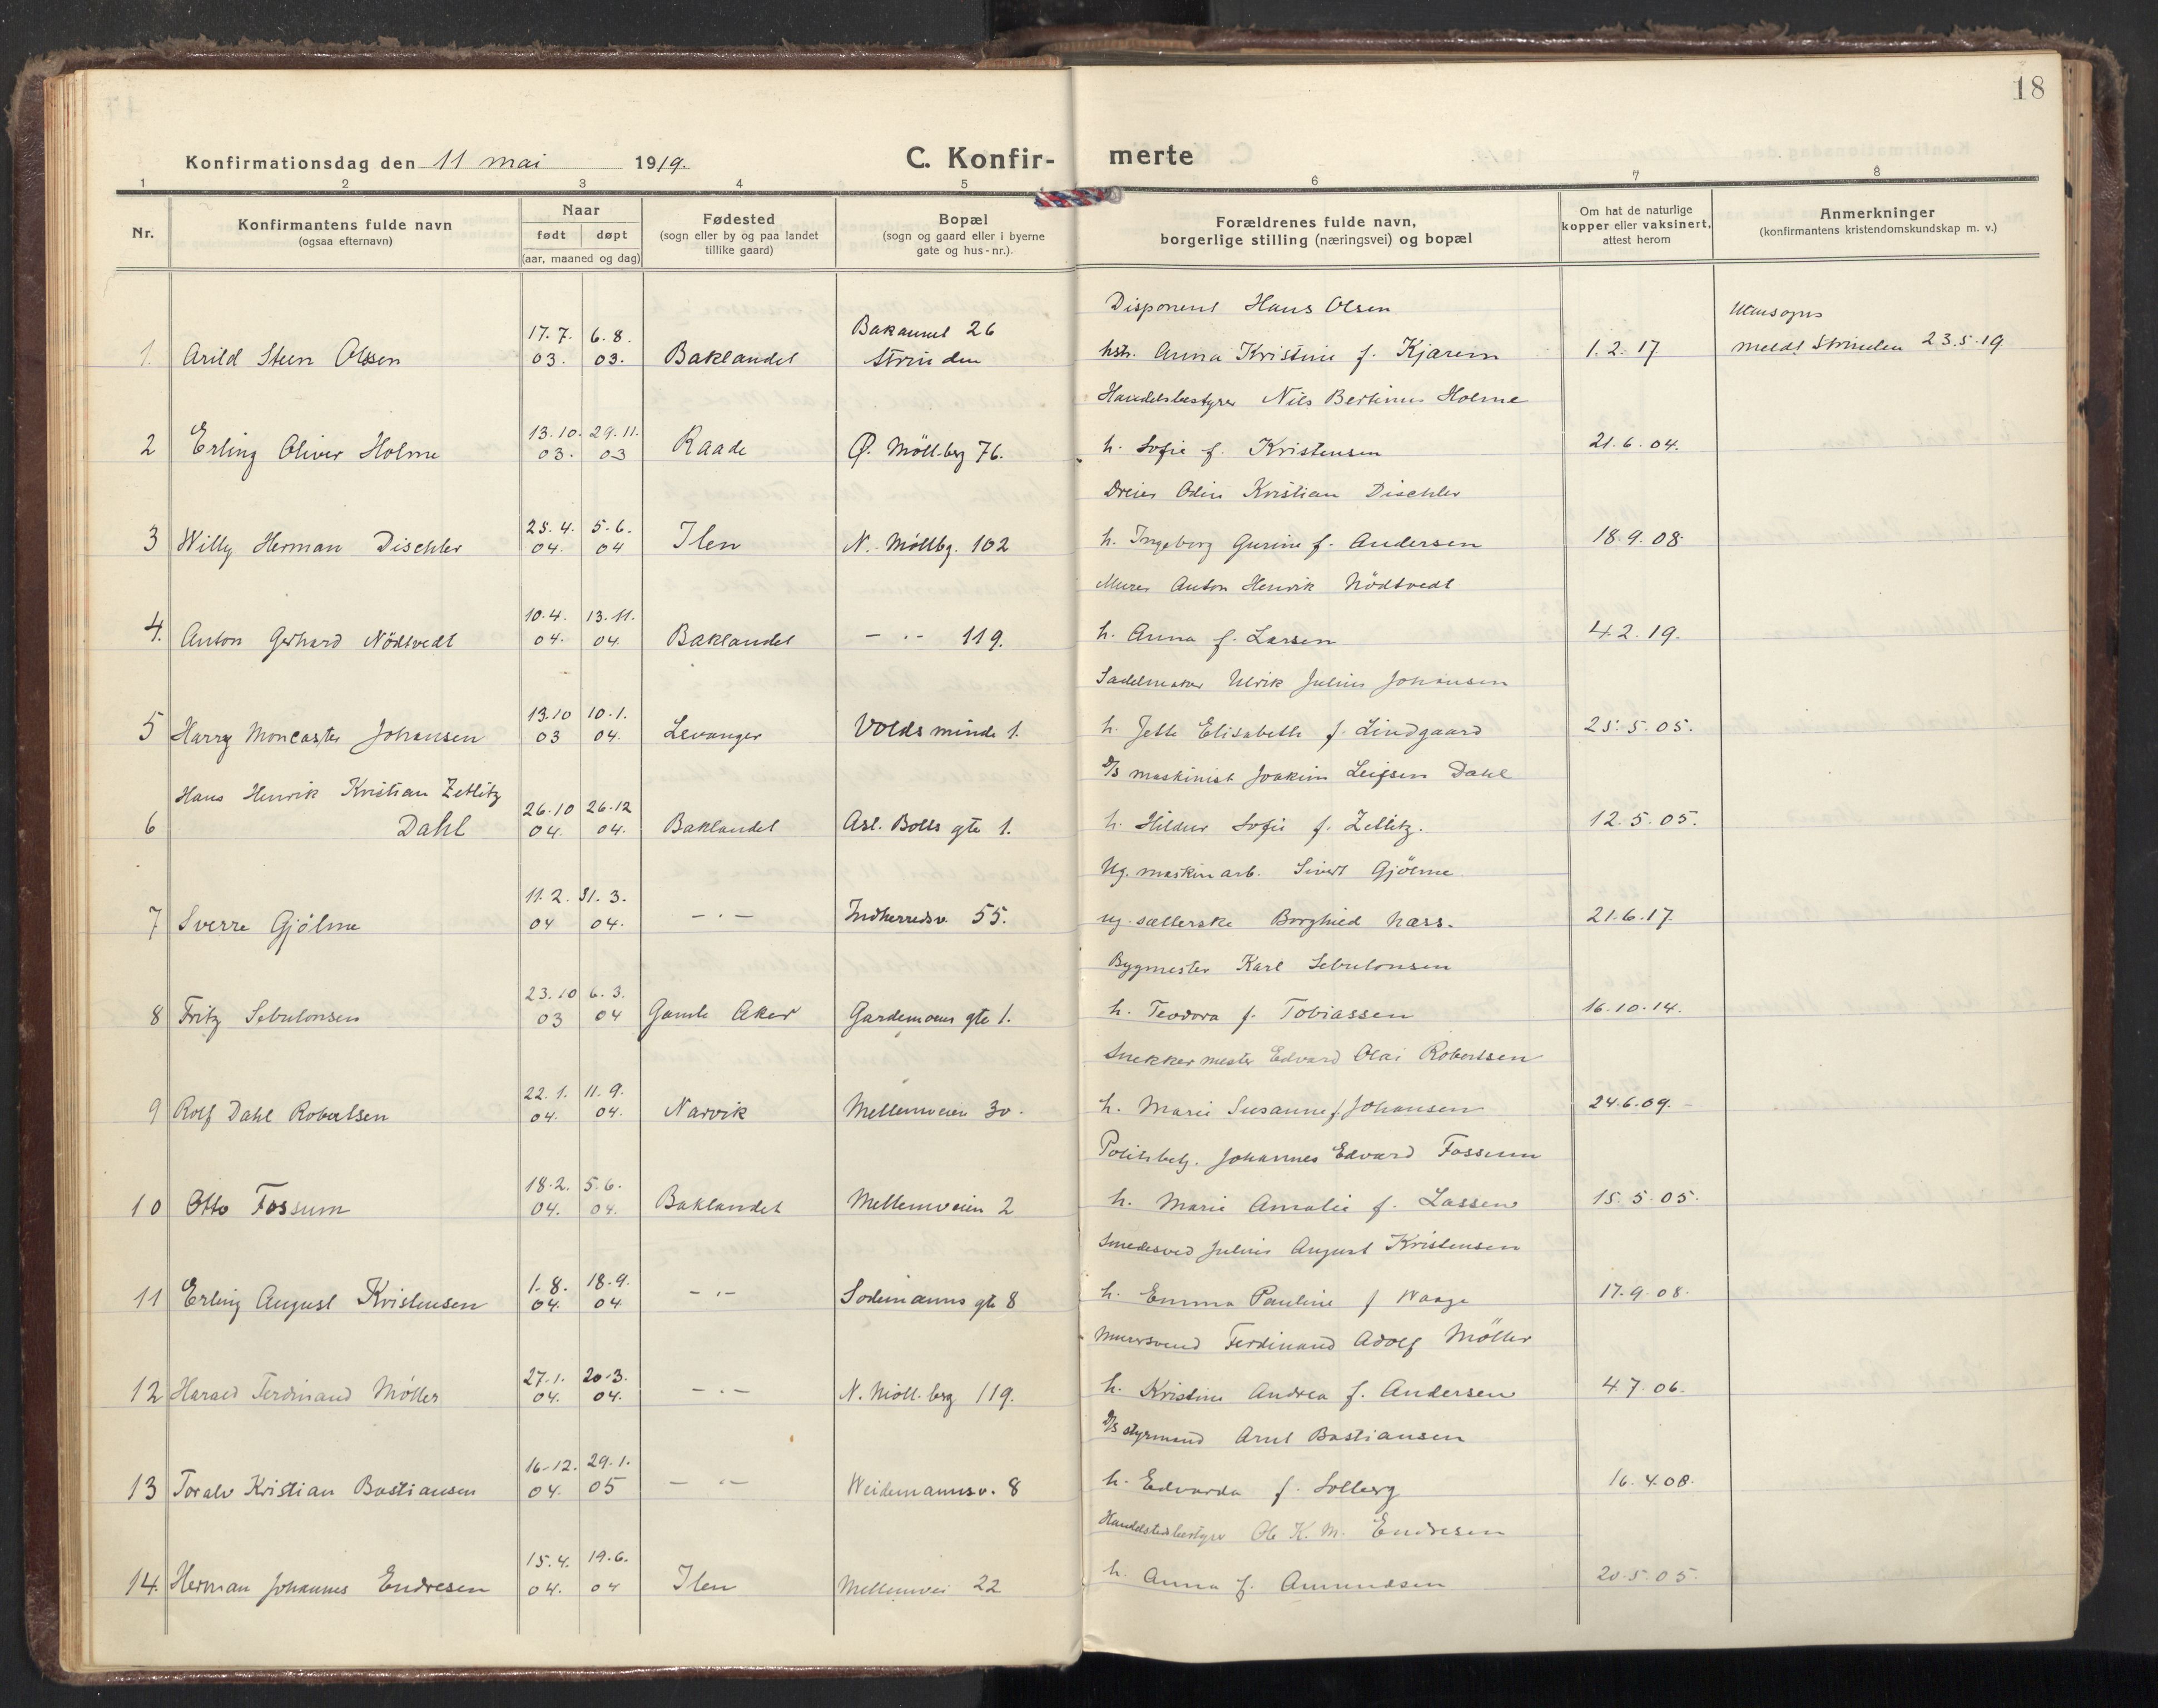 18
Konfirmationsdag den 11 mai 1919.
C. Konfir- merte
1 2 3 4 5 6 7 8
Nr.
Konfirmantens fulde navn
(ogsaa efternavn)
Naar
født døpt
(aar, maaned og dag)
Fødested
(sogn eller by og paa landet
tillike gaard)
Bopæl
(sogn og gaard eller i byerne
gate og hus-nr.).
Forældrenes fulde navn,
borgerlige stilling (næringsvei) og bopæl
Om hat de naturlige
kopper eller vaksinert,
attest herom
Anmerkninger
(konfirmantens kristendomskundskap m. v.)
Disponent Hans Olsen
17.7. 6.8. Bakaunet 26 Utensogns
1. Arild Steen Olsen 03. 03. Baklandet Strinden hstr. Anna Kristine f. Kjærem 1.2.17 meldt Strinden 23.5.19
Handelsbestyrer Nils Bertinus Holme
13.10. 29.11.
2 Erling Oliver Holme 03. 03 Raade Ø. Möll.berg 76. h. Sofie f. Kristensen 21.6.04.
Dreier Odin Kristian Dischler
25.4. 5.6.
3 Willy Herman Dischler 04. 04 Ilen N. Möllbg. 102 h. Ingeborg Gurine f. Andersen 18.9.08.
Murer Anton Henrik Nödtvedt
10.4. 13.11.
4. Anton Gerhard Nödtvedt 04. 04. Baklandet - " - 119. h. Anna f. Larsen 4.2.19.
Sadelmaker Ulrik Julius Johansen
13.10 10.1.
5 Harry Moncaster Johansen 03 04. Levanger Voldsminde 1. h. Jette Elisabeth f. Lindgaard 25.5.05.
D/S maskinist Joakim Leifsen Dahl
Hans Henrik Kristian Zetlitz 26.10 26.12
6 Dahl 04. 04. Baklandet Asl. Bolts gte 1. h. Hildur Sofie f. Zetlitz. 12.5.05.
Ug. maskinarb. Sivert Gjölme
11.2. 31.3.
7 Sverre Gjölme 04 04. - " - Indherredsv. 55. ug. sællerske Borghild Næss. 21.6.17.
Bygmester Karl Sebulonsen
23.10 6.3.
8 Fritz Sebulonsen 03 04 Gamle Aker Gardemoens gte 1. h. Teodora f. Tobiassen 16.10.14.
Snekkermester Edvard Olai Robertsen
22.1. 11.9.
9 Rolf Dahl Robertsen 04. 04. Narvik Mellemveien 30. h. Marie Susanne f Johansen 24.6.09.
Politibetj. Johannes Edvard Fossum
18.2. 5.6.
10 Otto Fossum 04. 04. Baklandet Mellemveien 2 h. Marie Amalie f. Lassen 15.5.05.
Smedesvd Julius August Kristensen
1.8. 18.9.
11 Erling August Kristensen 04. 04 - " - Sodemanns gte 8 h. Emma Pauline f Waage 17.9.08.
Murersvend Ferdinand Adolf Möller
27.1. 20.3.
12 Harald Ferdinand Möller 04. 04. - " - N. Möll.berg 119. h. Kristine Andrea f. Andersen 4.7.06.
D/S styrmand Arnt Bastiansen
16.12. 29.1.
13 Toralv Kristian Bastiansen 04. 05 - " - Weidemannsv. 8 h. Edvarda f. Solberg 16.4.08.
Handelstedbestyrer Ole K. M. Endresen
15.4. 19.6.
14. Herman Johannes Endresen 04. 04 Ilen Mellemvei 22 h. Anna f. Amundsen 20.5.05.